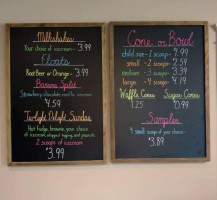 Milkshakes
Your choice of icecream - 3.99
Floats
Root Beer or Orange - 3.99
Banana Split
Strawberry, chocolate, vanilla icecream
4.59
Twilight Delight Sundae
Hot fudge, brownie, your choice
of icecream, whipped topping, and peanuts.
2 scoops of icecream
3.99
Cone or Bowl
child size - 1 scoop
small - 2 scoops
medium - 3 scoops 3.39
large - 4 scoops
Waffle Cones Sugar Cones
1.25 0.95
Samples
4 small scoops of your choice -
3.89